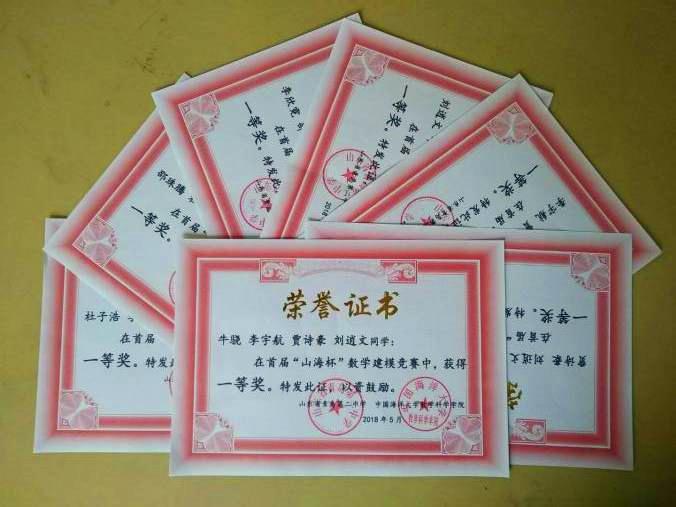 荣誉证书
牛骁 李宇航 贾诗豪 刘逍文同学:
在首届“山海杯”数学建模竞赛中，获得
一等奖。特发此证，以资鼓励。
中国海洋大学数学科学学院
2018年5月
杜子浩
在首届
一等奖。特发此
邵珠腾
在首届
一等奖。
李欣宽
在首届
一等奖。特发此
刘逍文
在首届
一等奖。特发此
李宇航
在首届
一等奖。特发此证
贾诗豪 刘逍文
在首届“
一等奖。特发